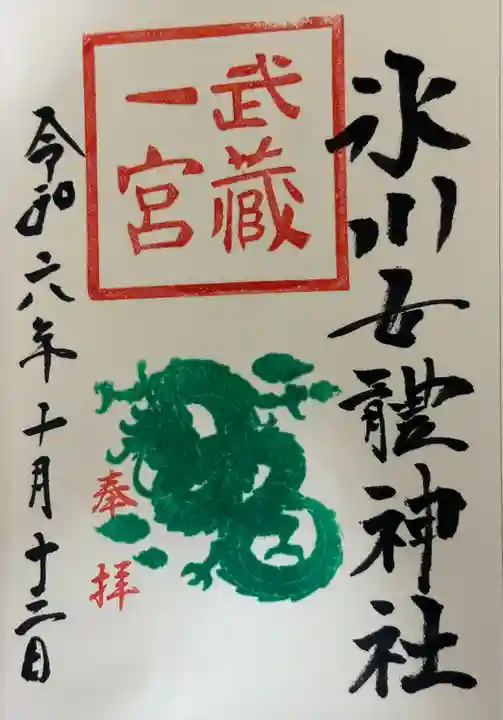 氷川女體神社
武蔵
一宮
奉拝
令和六年十月十二日